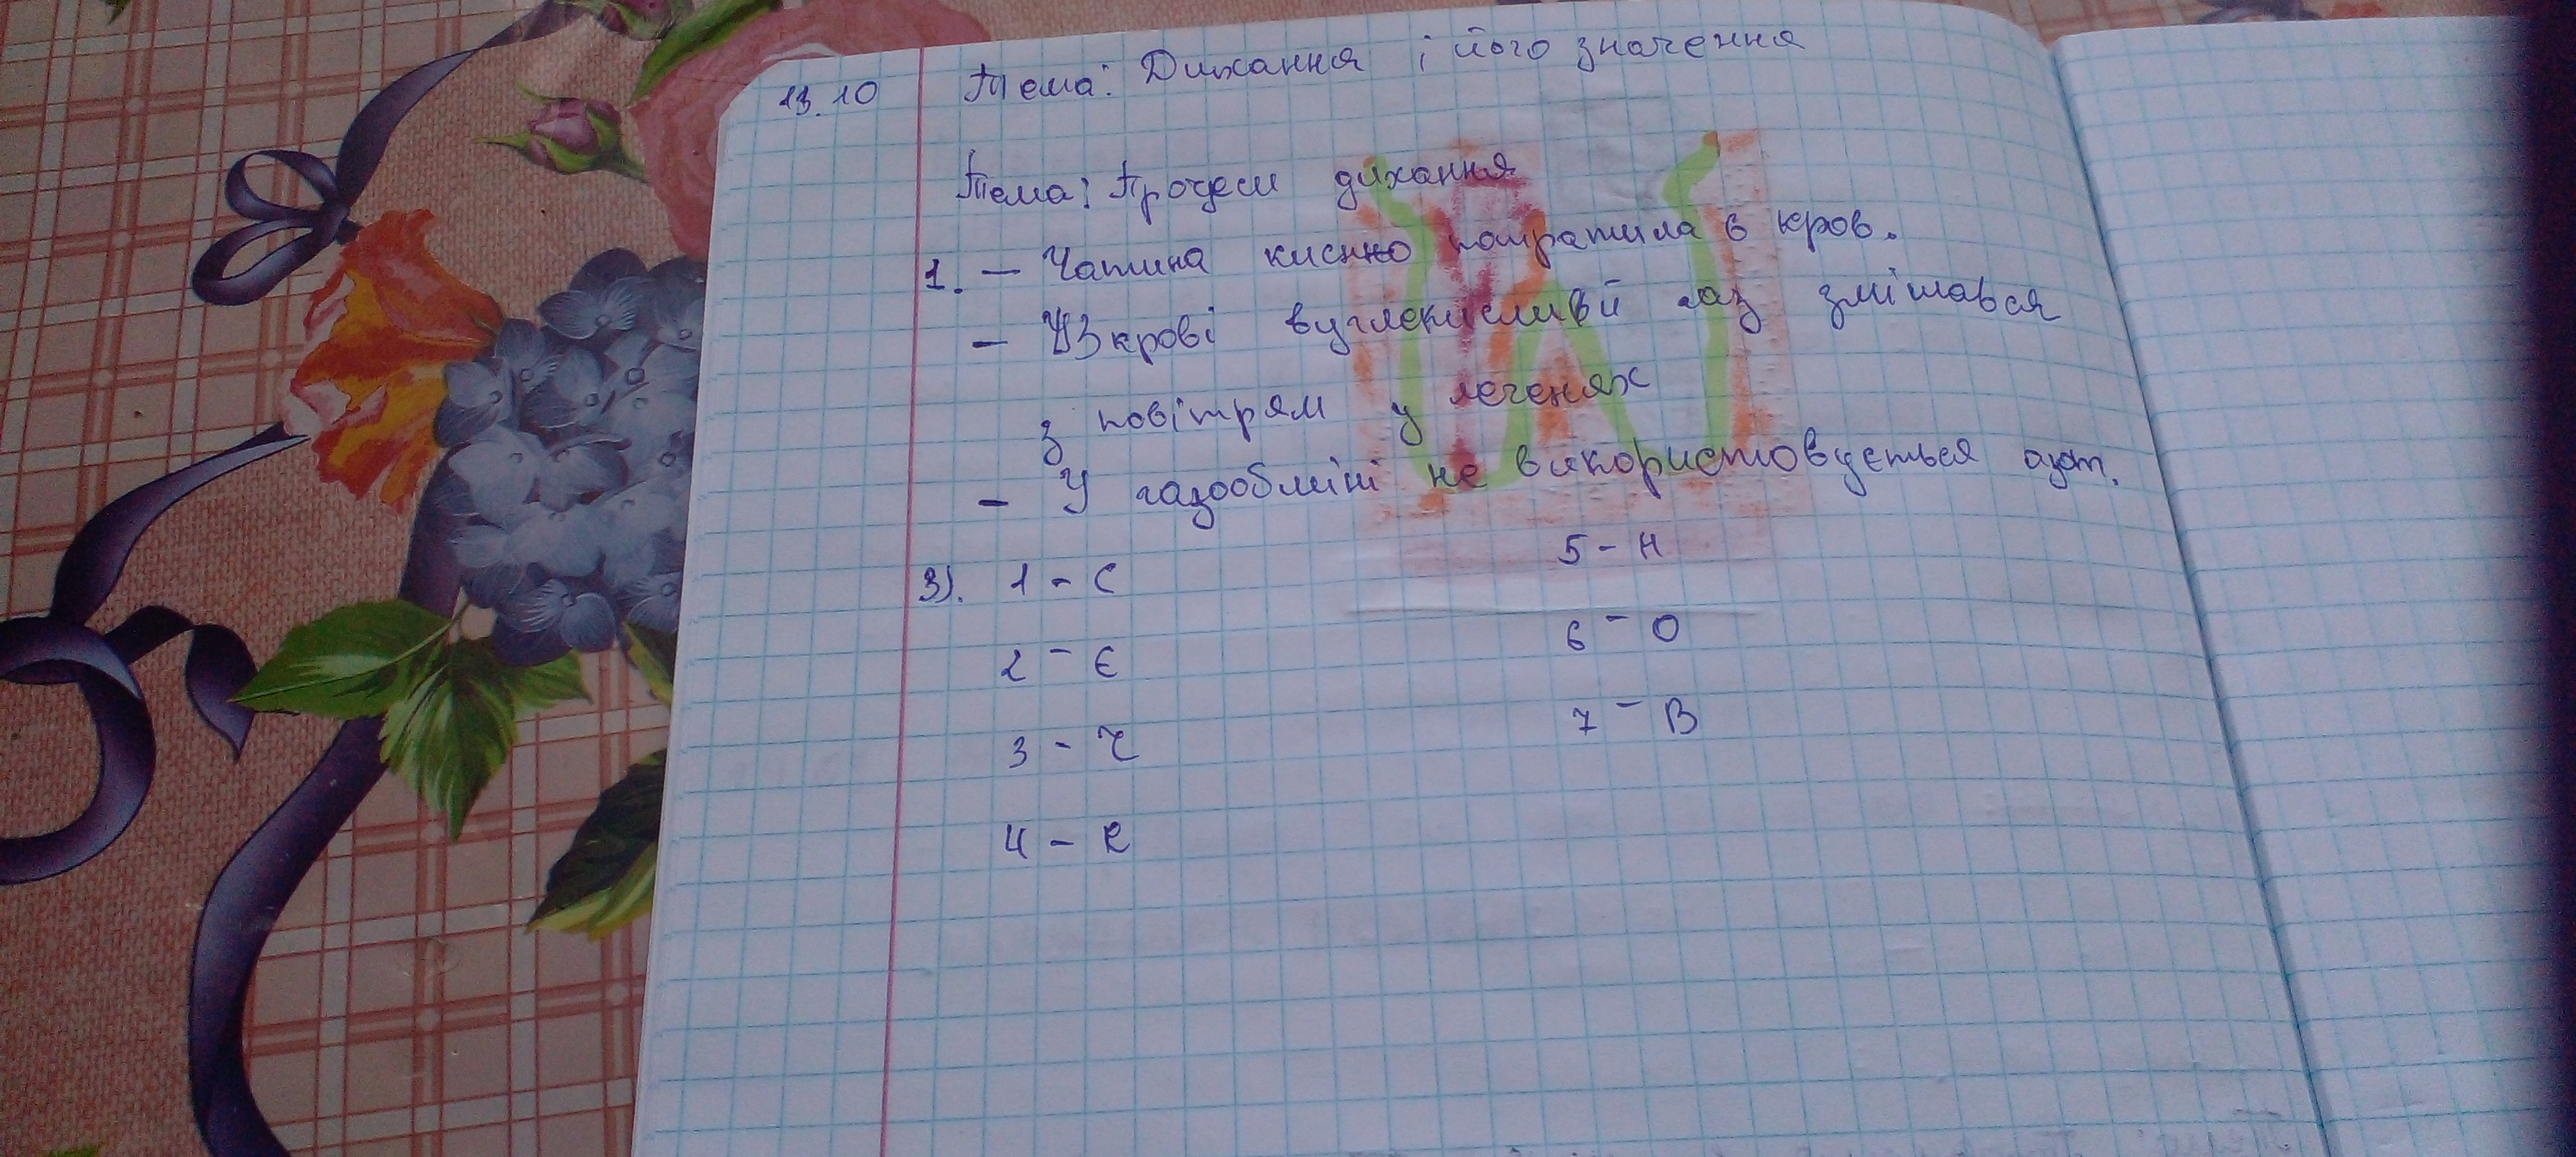 13.10 Тема: Дихання і його значення
Тема: Процеси дихання
1. – Частина кисню потрапила в кров.
– З крові вуглекислий газ змішався
з повітрям у легенях
– У газообміні не використовується азот.
3). 1 - С 5 - Н
2 - Є 6 - О
3 - Ч 7 - В
4 -